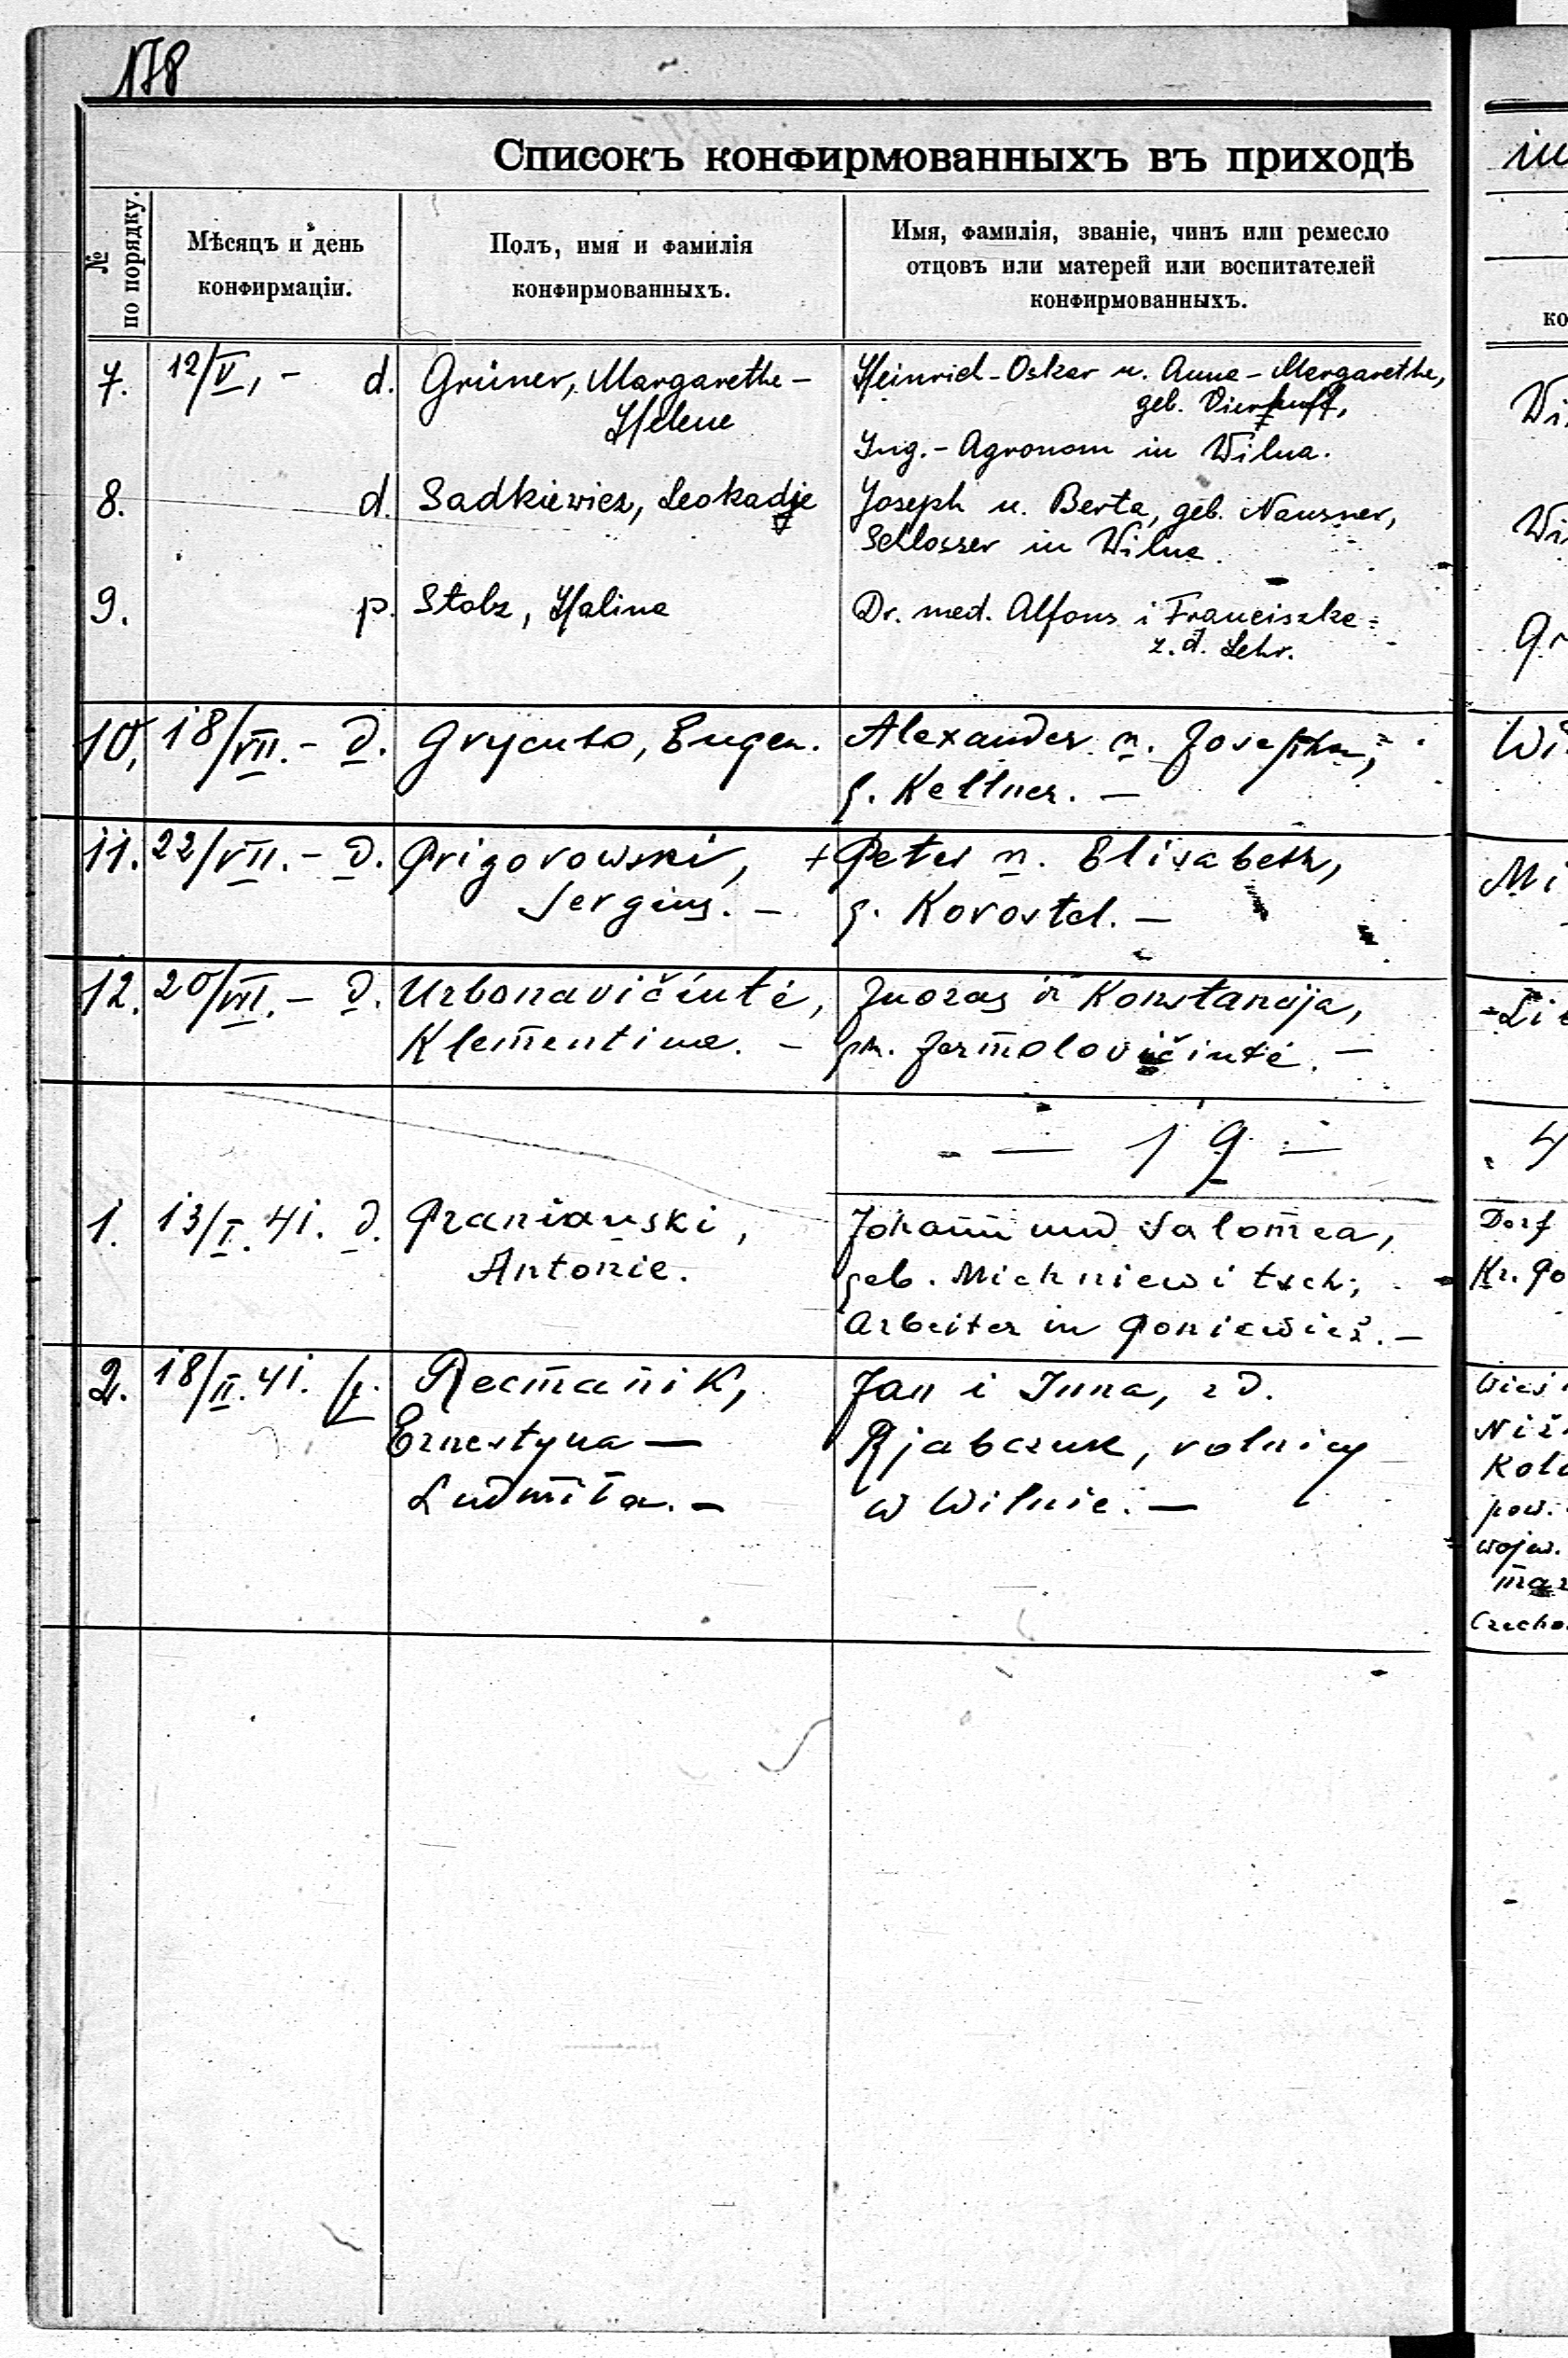 178
Списокъ конфирмованныхъ въ приходѣ
№ по порядку.
Мѣсяцъ и день
конфирмаціи.
Полъ, имя и фамилія
конфирмованныхъ.
Имя, фамилія, званіе, чинъ или ремесло
отцовъ или матерей или воспитателей
конфирмованныхъ.
7. 12/V, - d. Grüner, Margarethe - Heinrich-Oskar u. Anna-Margarethe,
Helene geb. Vierhuff,
Ing.-Agronom in Wilna.
8. d. Sadkiewicz, Leokadje Joseph u. Berta, geb. Naussner,
Schlosser in Wilna.
9. p. Stolz, Halina Dr. med. Alfons i Franciszka
z. d. Lehr.
10. 18/VII. - d. Grycuto, Eugen. Alexander u. Josephine,
g. Kellner. -
11. 22/VII. - d. Prigorowski, + Peter u. Elisabeth,
Sergius. - g. Korostel. -
12. 20/VII. - d. Urbonavičiutė, Juozas ir Konstancija,
Klementina. - Jermolovičiutė. -
- 19 - 4
1. 13/I. 41. d. Praniauski, Johann und Salomea,
Antonie. geb. Michniewitsch,
Arbeiter in Poniewież. -
2. 18/II. 41. p. Recmanik, Jan i Inna, z d.
Ernestyna - Rjabczuk, rolnicy
Ludmiła. - w Wilnie. -
in
ко
Wi
Wi
Gr
Wi
Mi
Dorf
Kr. Po
Wieś
Niż
Kol
pow.
wojew.
Czecho